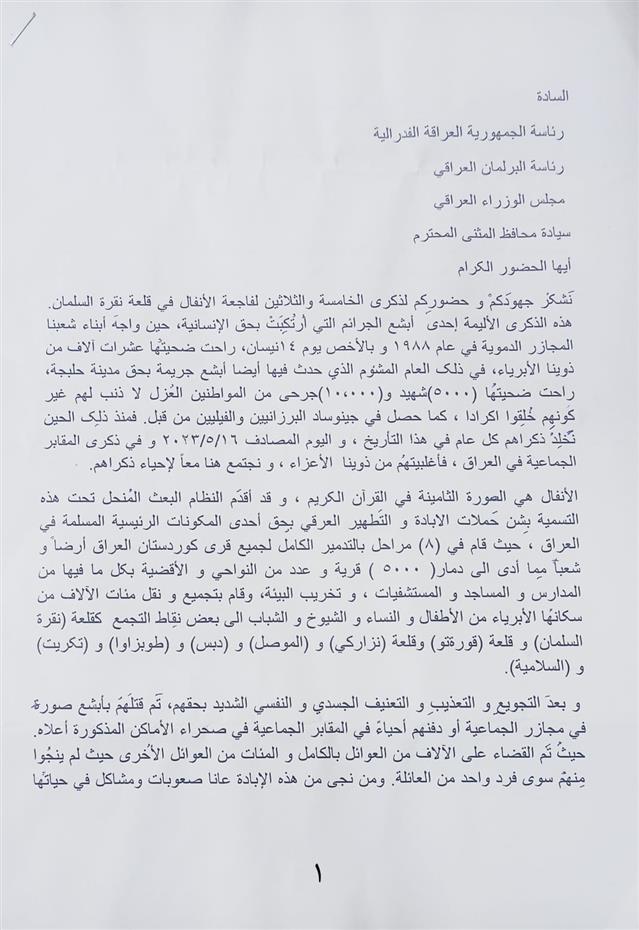 السادة
رئاسة الجمهورية العراقة الفدرالية
رئاسة البرلمان العراقي
مجلس الوزراء العراقي
سيادة محافظ المثنى المحترم
أيها الحضور الكرام
نَشكرْ جهودَكمْ و حضوركِم لذكرى الخامسة والثلاثين لفاجعة الأنفال في قلعة نقرة السلمان.
هذه الذكرى الأليمة إحدى أبشع الجرائم التي أرتُكِبَتْ بحق الإنسانية، حين واجهَ أبناء شعبنا
المجازر الدموية في عام ١٩٨٨ و بالأخص يوم ١٤نيسان، راحت ضحيتُها عشرات آلاف من
ذوينا الأبرياء، في ذلك العام المشئوم الذي حدث فيها أيضا أبشع جريمة بحق مدينة حلبجة،
راحت ضحيتهُا (٥٠٠٠)شهيد و(١٠،٠٠٠)جرحى من المواطنين العُزل لا ذنب لهم غير
كَونهِم خُلِقوا اكرادا ، كما حصل في جينوساد البرزانيين والفيليين من قبل. فمنذ ذلكِ الحين
تُخلِدُ ذكراهم كل عام في هذا التأريخ ، و اليوم المصادف ٢٠٢٣/٥/١٦ و في ذكرى المقابر
الجماعية في العراق ، فأغلبيتهُم من ذوينا الأعزاء ، و نجتمع هنا معاً لإحياء ذكراهم.
الأنفال هي الصورة الثامينة في القرآن الكريم ، و قد أقدَم النظام البعث المُنحل تحت هذه
التسمية بِشن حَملات الابادة و التَطهير العرقي بحق أحدى المكونات الرئيسية المسلمة في
العراق ، حيث قام في (٨) مراحل بالتدمير الكامل لجميع قرى كوردستان العراق أرضاً و
شعباً مِما أدى الى دمار( ٥٠٠٠ ) قرية و عدد من النواحي و الأقضية بكل ما فيها من
المدارس و المساجد و المستشفيات ، و تخريب البيئة، وقام بتجميع و نقل مئات الآلاف من
سكانهَا الأبرياء من الأطفال و النساء و الشيوخ و الشباب الى بعض نقِاط التجمع كقلعة (نقرة
السلمان) و قلعة (قورةتو) وقلعة (نزاركي) و (الموصل) و (دبس) و (طوبزاوا) و (تكريت)
و (السلامية).
و بعدَ التجويع و التعذيبِ و التعنيف الجسدي و النفسي الشديد بحقهم، تَم قتلَهمُ بأبشع صورة
في مجازر الجماعية أو دفنهم أحياءً في المقابر الجماعية في صحراء الأماكن المذكورة أعلاه.
حيثُ تَم القضاء على الآلاف من العوائل بالكامل و المئات من العوائل الأخرى حيث لم ينجُوا
مِنهمْ سوى فرد واحد من العائلة. ومن نجى من هذه الإبادة عانا صعوبات ومشاكل في حياتهَا
١